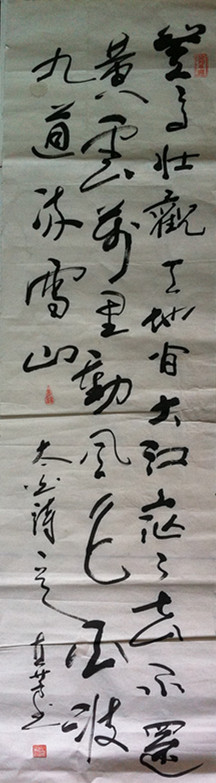 登高壯觀天地間大江茫々去不還
黃雲萬里動風色白波
九道流雪山
太白詩